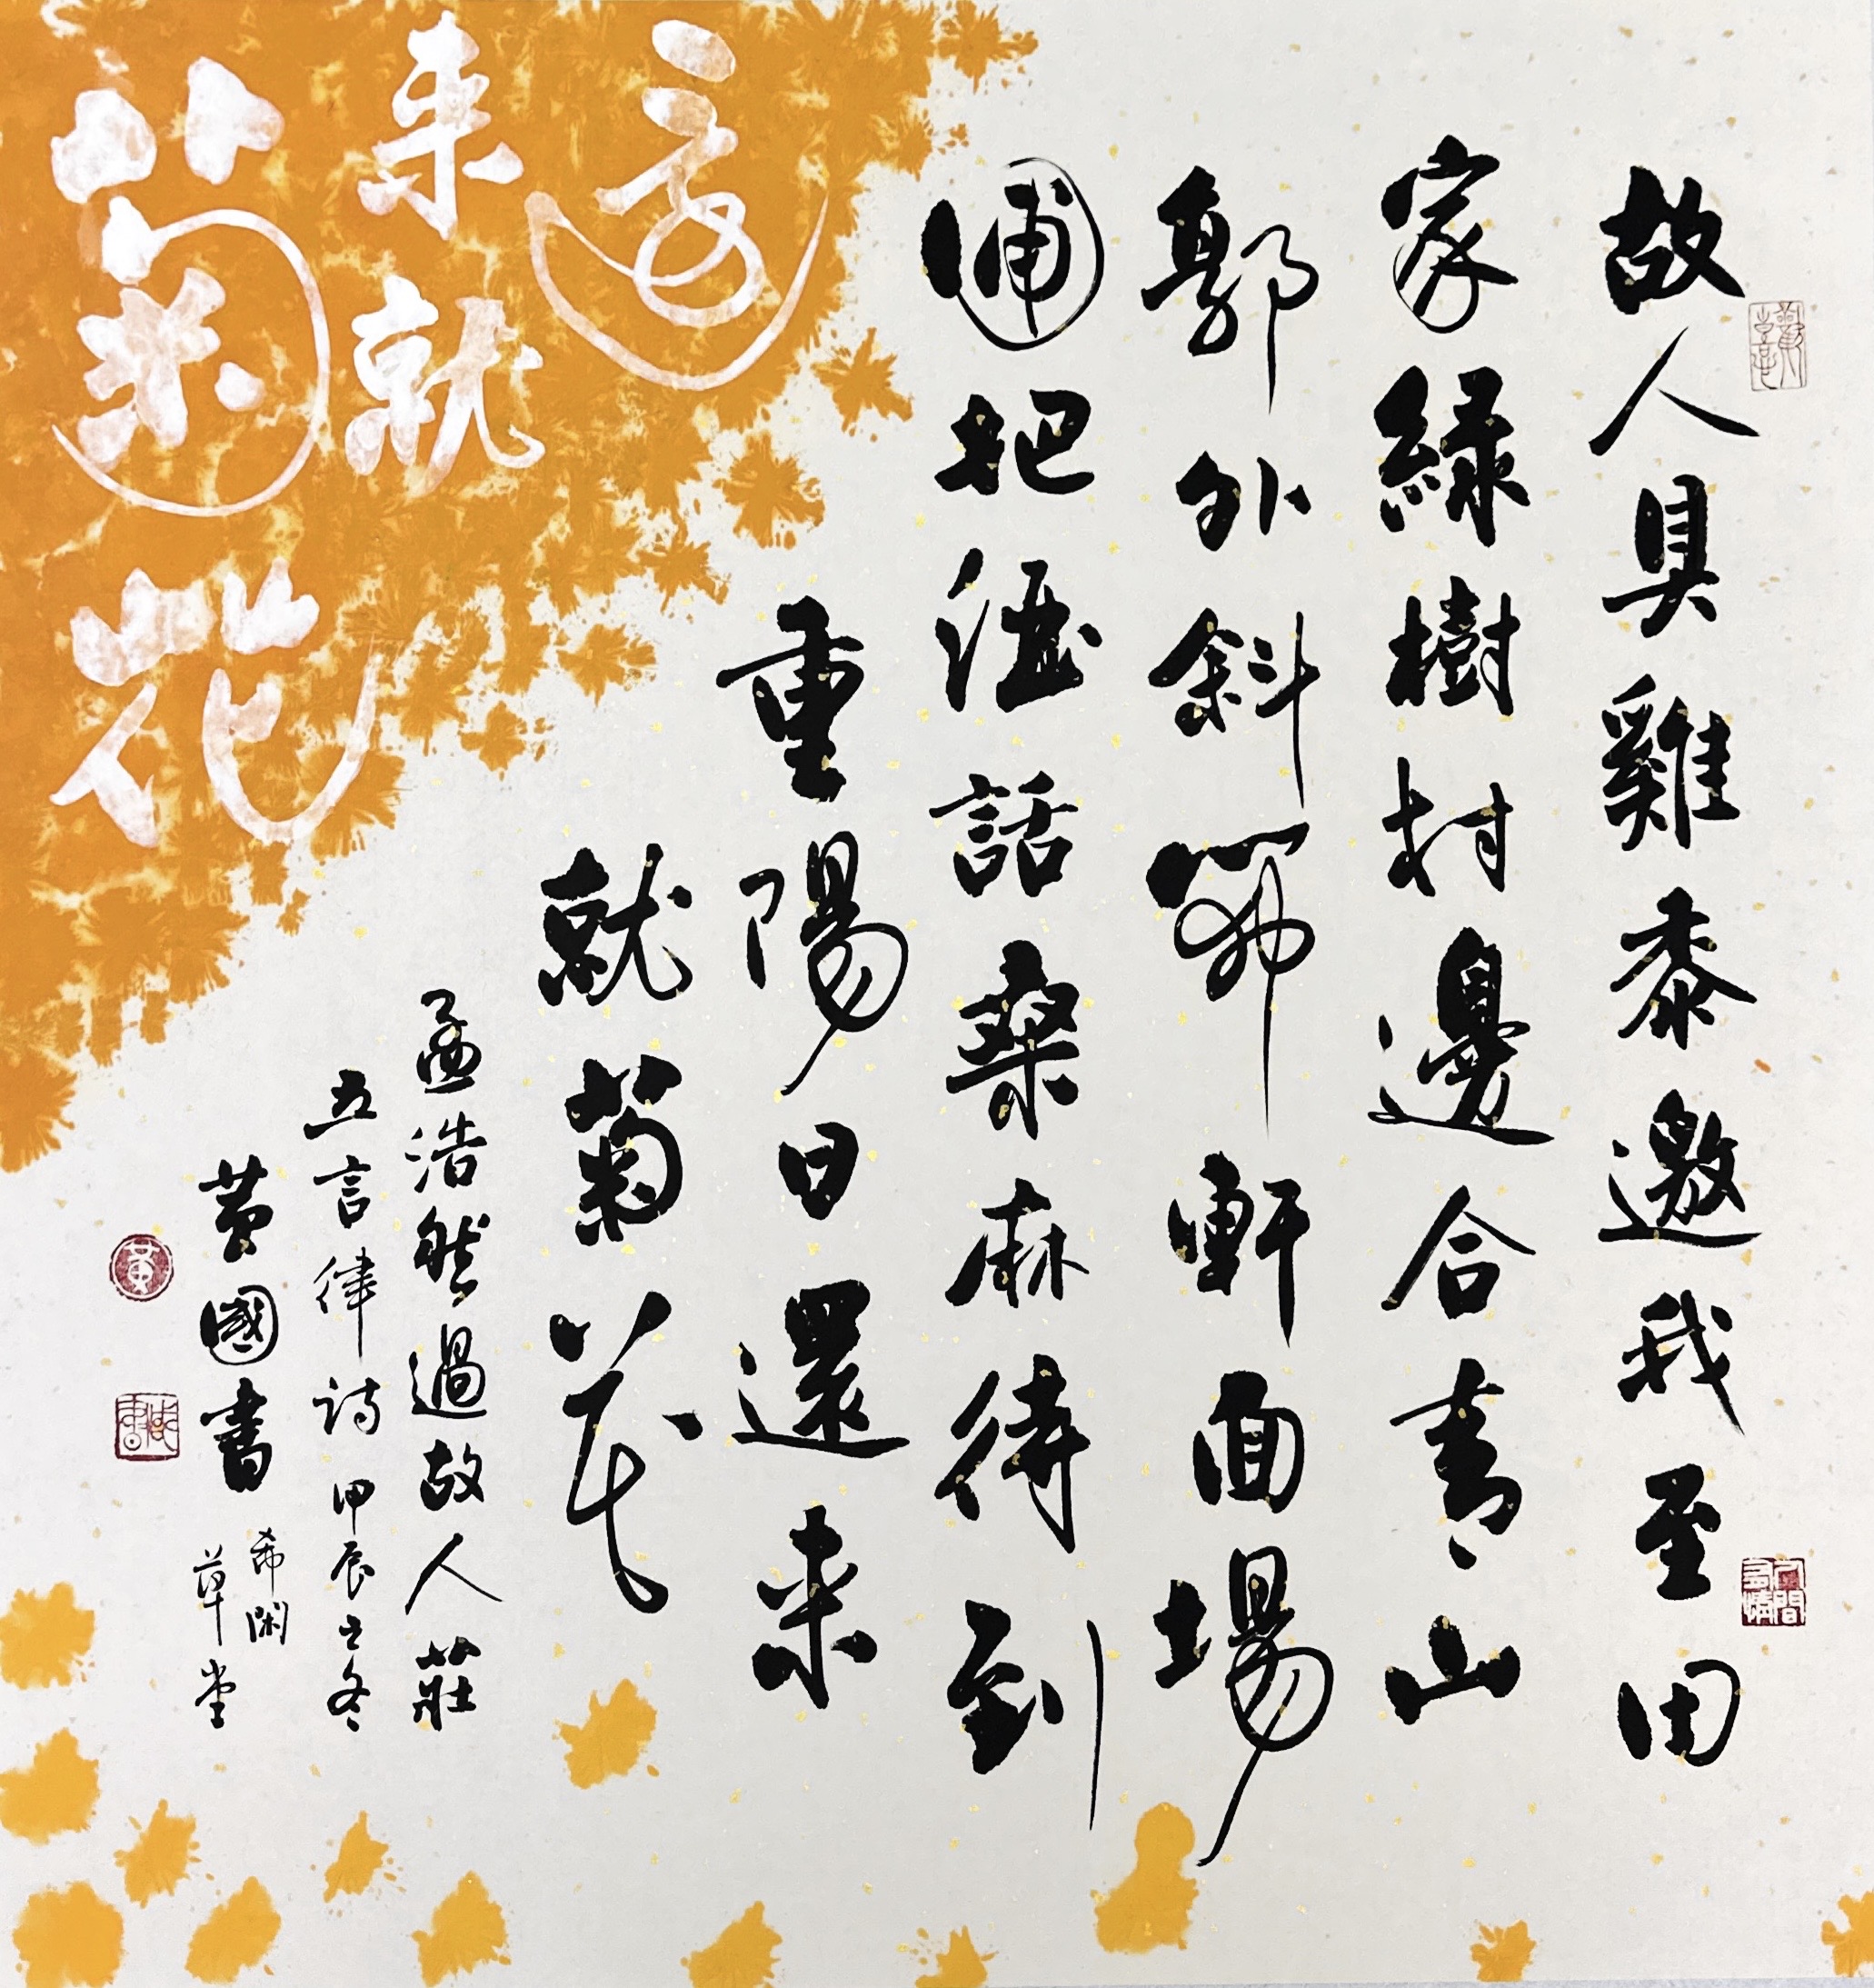 故人具雞黍邀我至田
家緑樹村邊合青山
郭外斜開軒面場
圃把酒話桑麻待到
重陽日還来
就菊花
孟浩然過故人莊
五言律詩甲辰之冬
黄國書
希閑
草堂
還
来就
菊花
黄
人間
多情